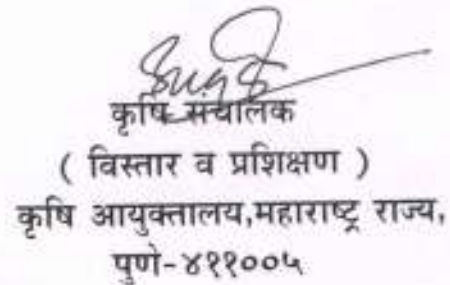 कृषि संचालक
( विस्तार व प्रशिक्षण )
कृषि आयुक्तालय,महाराष्ट्र राज्य,
पुणे-४११००५